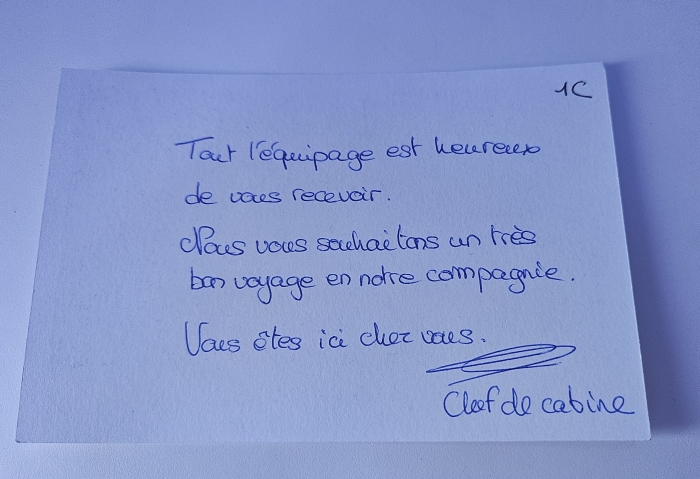 1C
Tout l'équipage est heureux
de vous recevoir.
Nous vous souhaitons un très
bon voyage en notre compagnie.
Vous êtes ici chez vous.
Chef de cabine